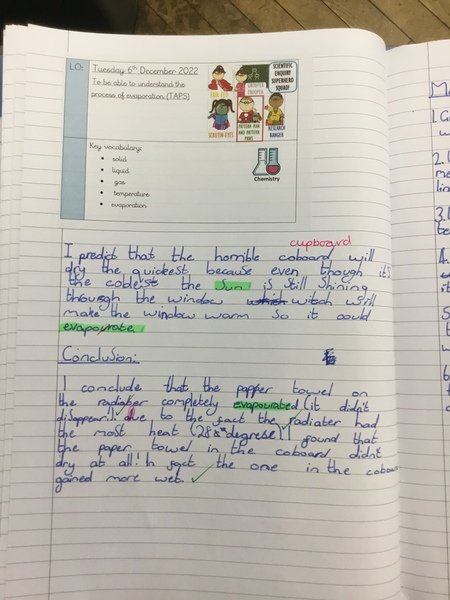 LO:
Tuesday 6th December 2022
To be able to understand the
process of evaporation (TAPS)
SCIENTIFIC
ENQUIRY
SUPERHERO
SQUAD!
FAIR FLO
GROUPER
TROOPER
SCRUTIN-EYES
PATTERN MAN
AND PATTERN
PAWS
RESEARCH
RANGER
Key vocabulary:
• solid
• liquid
• gas
• temperature
• evaporation
Chemistry
cupboard
I predict that the horrible coboard will
dry the quickest because even though it's
the coldest the Sun is still shining
through the window which witch will
make the window warm so it could
evapourate.
Conclusion:
I conclude that the papper towel on
the radiater completely evapourated (it didn't
disappear!) due to the fact the radiater had
the most heat (28.5° degrese) I found that
the paper towel in the coboard didn't
dry at all! In fact the one in the coboard
gained more wet.
1.
2.
3.